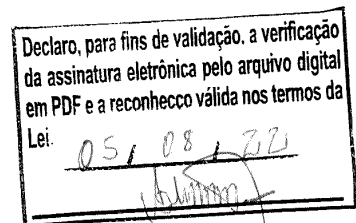 Declaro, para fins de validação, a verificação
da assinatura eletrônica pelo arquivo digital
em PDF e a reconhecço válida nos termos da
Lei.
05, 08, 22